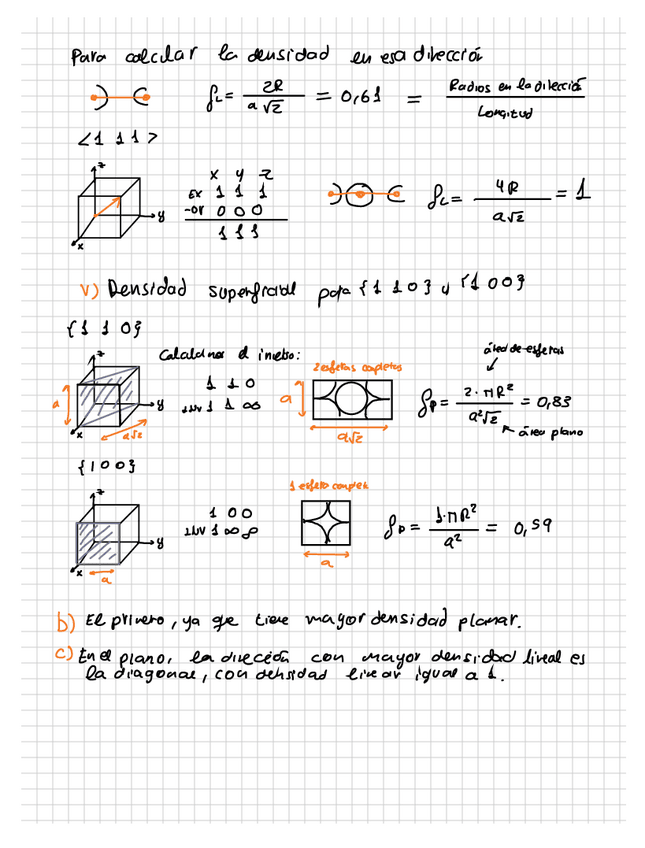 Para calcular la densidad en esa dirección
ρL = 2R / a√2 = 0,61 = Radios en la dirección / Longitud
<1 1 1>
z
x y z
Ex 1 1 1
-or 0 0 0
1 1 1
y
x
ρL = 4R / a√2 = 1
V) Densidad superficial para {1 1 0} y {1 0 0}
{1 1 0}
z
y
x
a
a√2
Calculamos el inverso:
1 1 0
inv 1 1 ∞
2 esferas completas
a
a√2
área de esferas
ρP = 2·πR² / a²√2 = 0,83
área plano
{1 0 0}
z
y
x
a
1 0 0
inv 1 ∞ ∞
1 esfera complet
a
ρP = 1·πR² / a² = 0,59
b) El primero, ya que tiene mayor densidad planar.
c) En el plano, la dirección con mayor densidad lineal es
la diagonal, con densidad linear igual a 1.